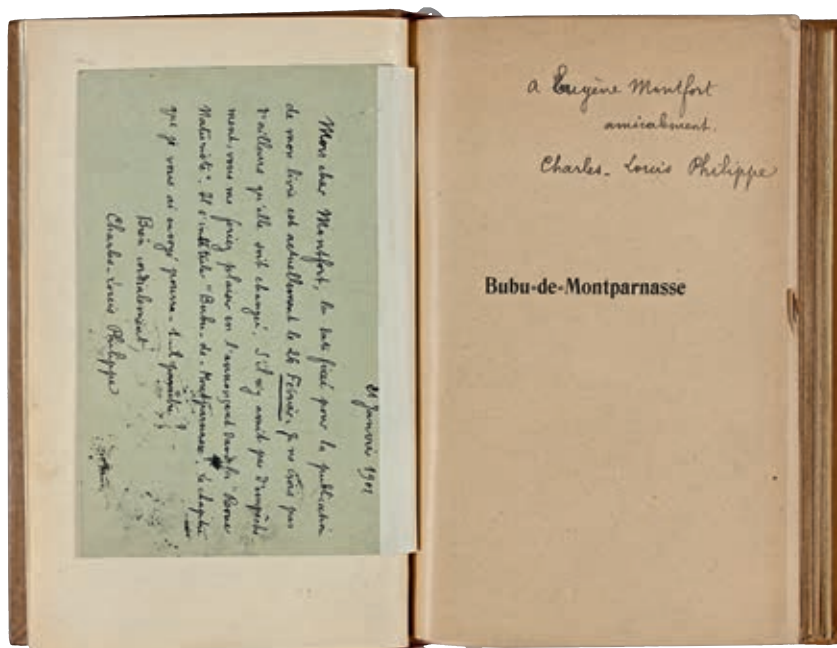 21 Janvier 1901
Mon cher Montfort, la date fixée pour la publication
de mon livre est actuellement le 26 Février. Je ne crois pas
d'ailleurs qu'elle soit changée. S'il n'y avait pas d'empêche-
ment, vous me feriez plaisir en l'annonçant dans la Revue
Naturiste. Il s'intitule "Bubu-de-Montparnasse". Le chapitre
que je vous ai envoyé pourra-t-il paraître ?
Bien cordialement,
Charles-Louis Philippe
a Eugène Montfort
amicalement.
Charles-Louis Philippe
Bubu-de-Montparnasse